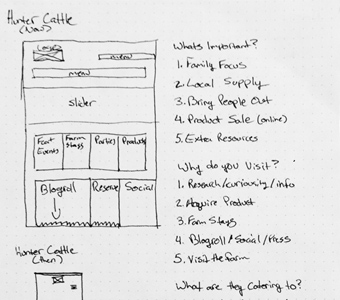 Hunter Cattle
(Now)
Logo
menu
menu
slider
Farm Events
Farm Stays
Parties
Products
Blogroll
Reserve
Social
Whats Important?
1. Family Focus
2. Local Supply
3. Bring People Out
4. Product Sale (online)
5. Extra Resources
Why do you Visit?
1. Research/curiosity/info
2. Aquire Product
3. Farm Stays
4. Blogroll/Social/Press
5. Visit the farm
What are they catering to?
Hunter Cattle
(then)